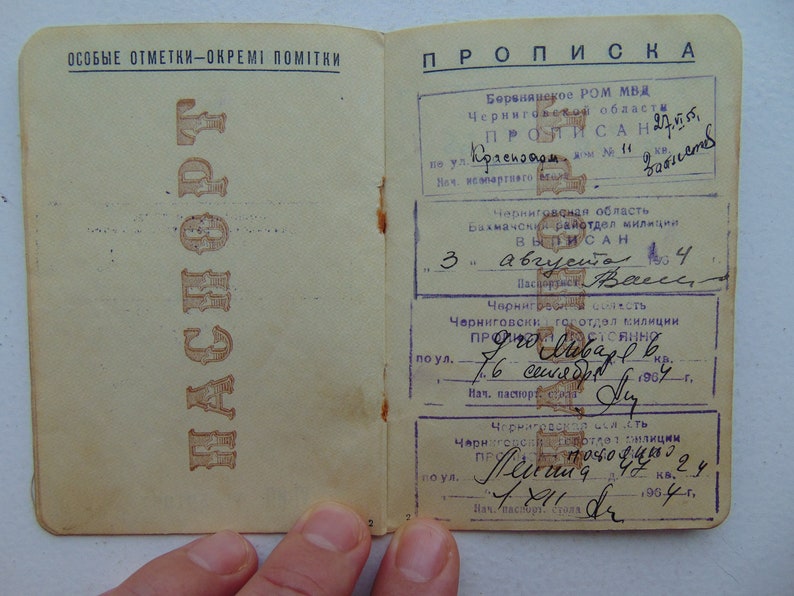 ОСОБЫЕ ОТМЕТКИ—ОКРЕМІ ПОМІТКИ
ПАСПОРТ
2
ПРОПИСКА
ПАСПОРТ
Борзнянское РОМ МВД
Черниговской области
ПРОПИСАН 27.VI.55.
по ул. Красноарм. дом № 11 кв.
Нач. паспортного стола
Черниговская область
Бахмачский райотдел милиции
ВЫПИСАН
„ 3 " августа 1964 г.
Паспортист
Черниговская область
Черниговский горотдел милиции
ПРОПИСАН ПОСТОЯННО
по ул. 9го Января 6 кв.
„ 16 сентября 1964 г,
Нач. паспорт. стола
Черниговская область
Черниговский горотдел милиции
ПРОПИСАН постоянно
по ул. Ленина д. 47 кв. 24
„ 1 XII 1964 г,
Нач. паспорт. стола
2